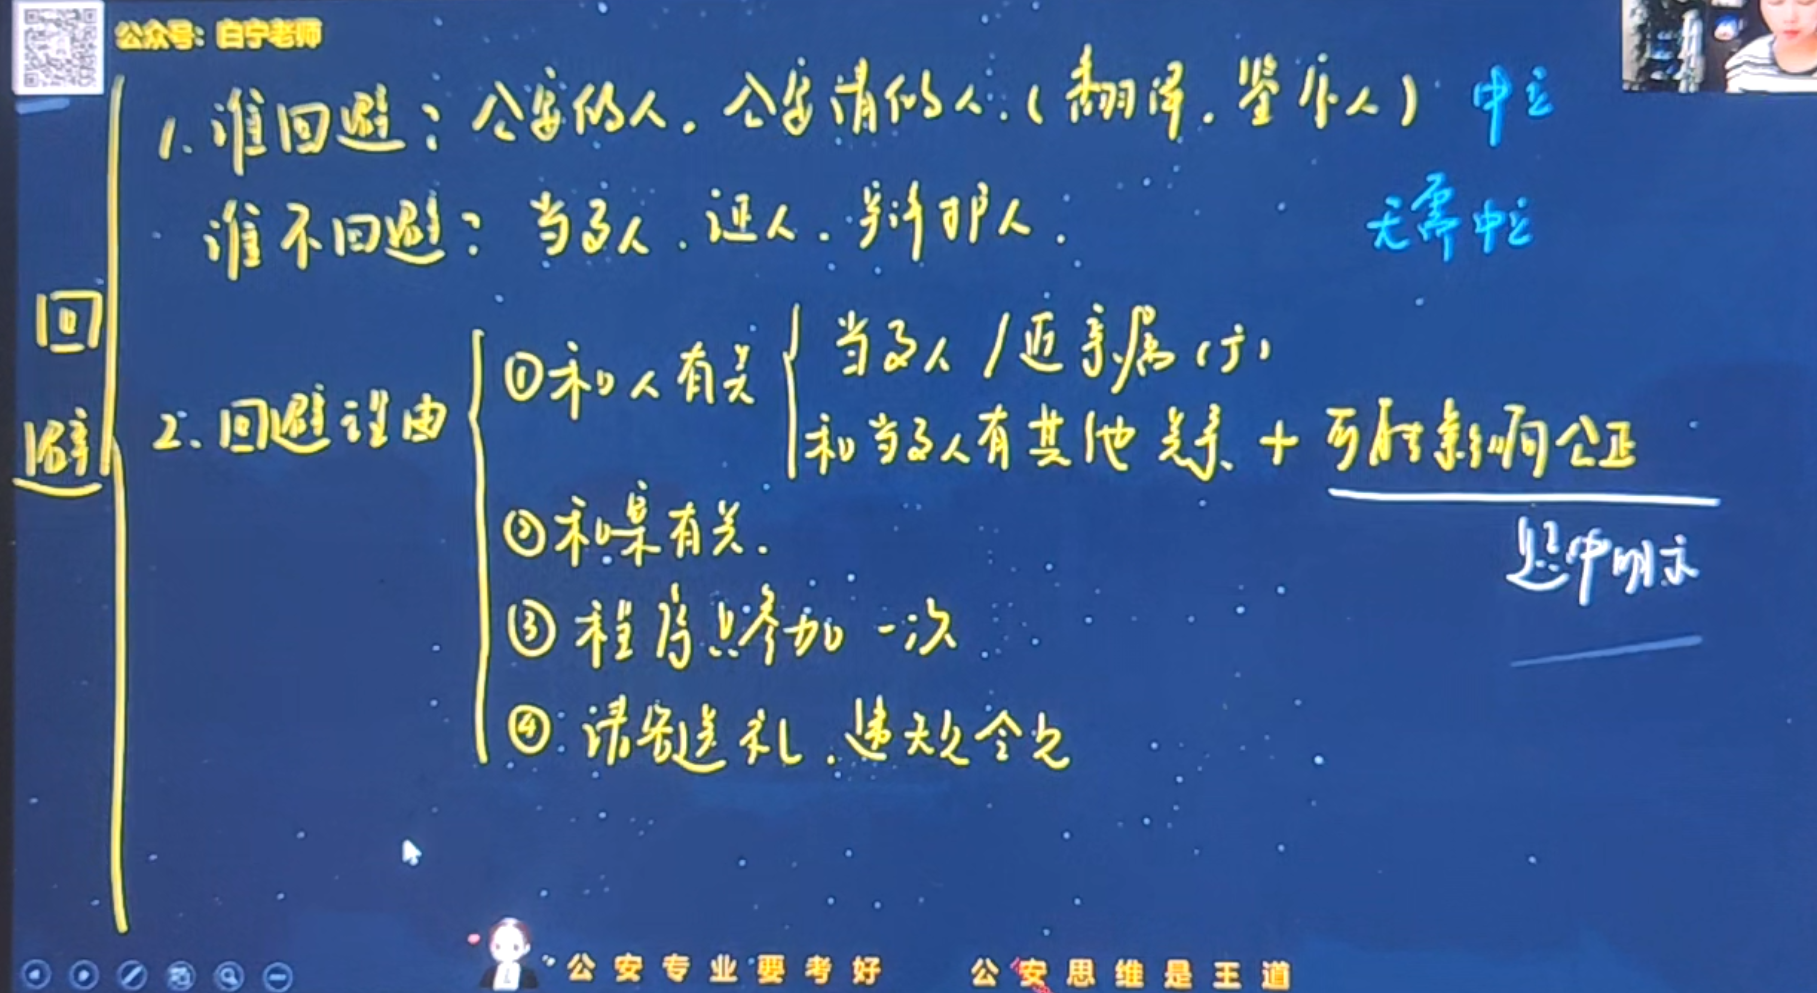 公众号：白宁老师
1. 谁回避：公安的人．公安请的人．（翻译．鉴定人） 中立
谁不回避：当事人．证人．辩护人． 无需中立
回避
2. 回避理由
①和人有关
当事人/近亲属（方）
和当事人有其他关系 + 可能影响公正
题中明示
②和案有关．
③程序只参加一次
④请客送礼．违规会见
公安专业要考好 公安思维是王道